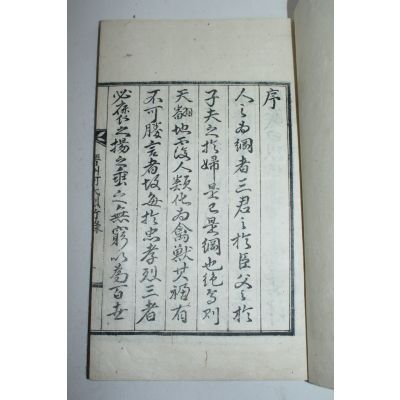 序
人之為綱者三君之於臣父之於
子夫之於婦是已是綱也絶焉則
天翻地覆人類化為禽獸其禍有
不可勝言者故每於忠孝烈三者
必表之揚之垂之無窮以為百世